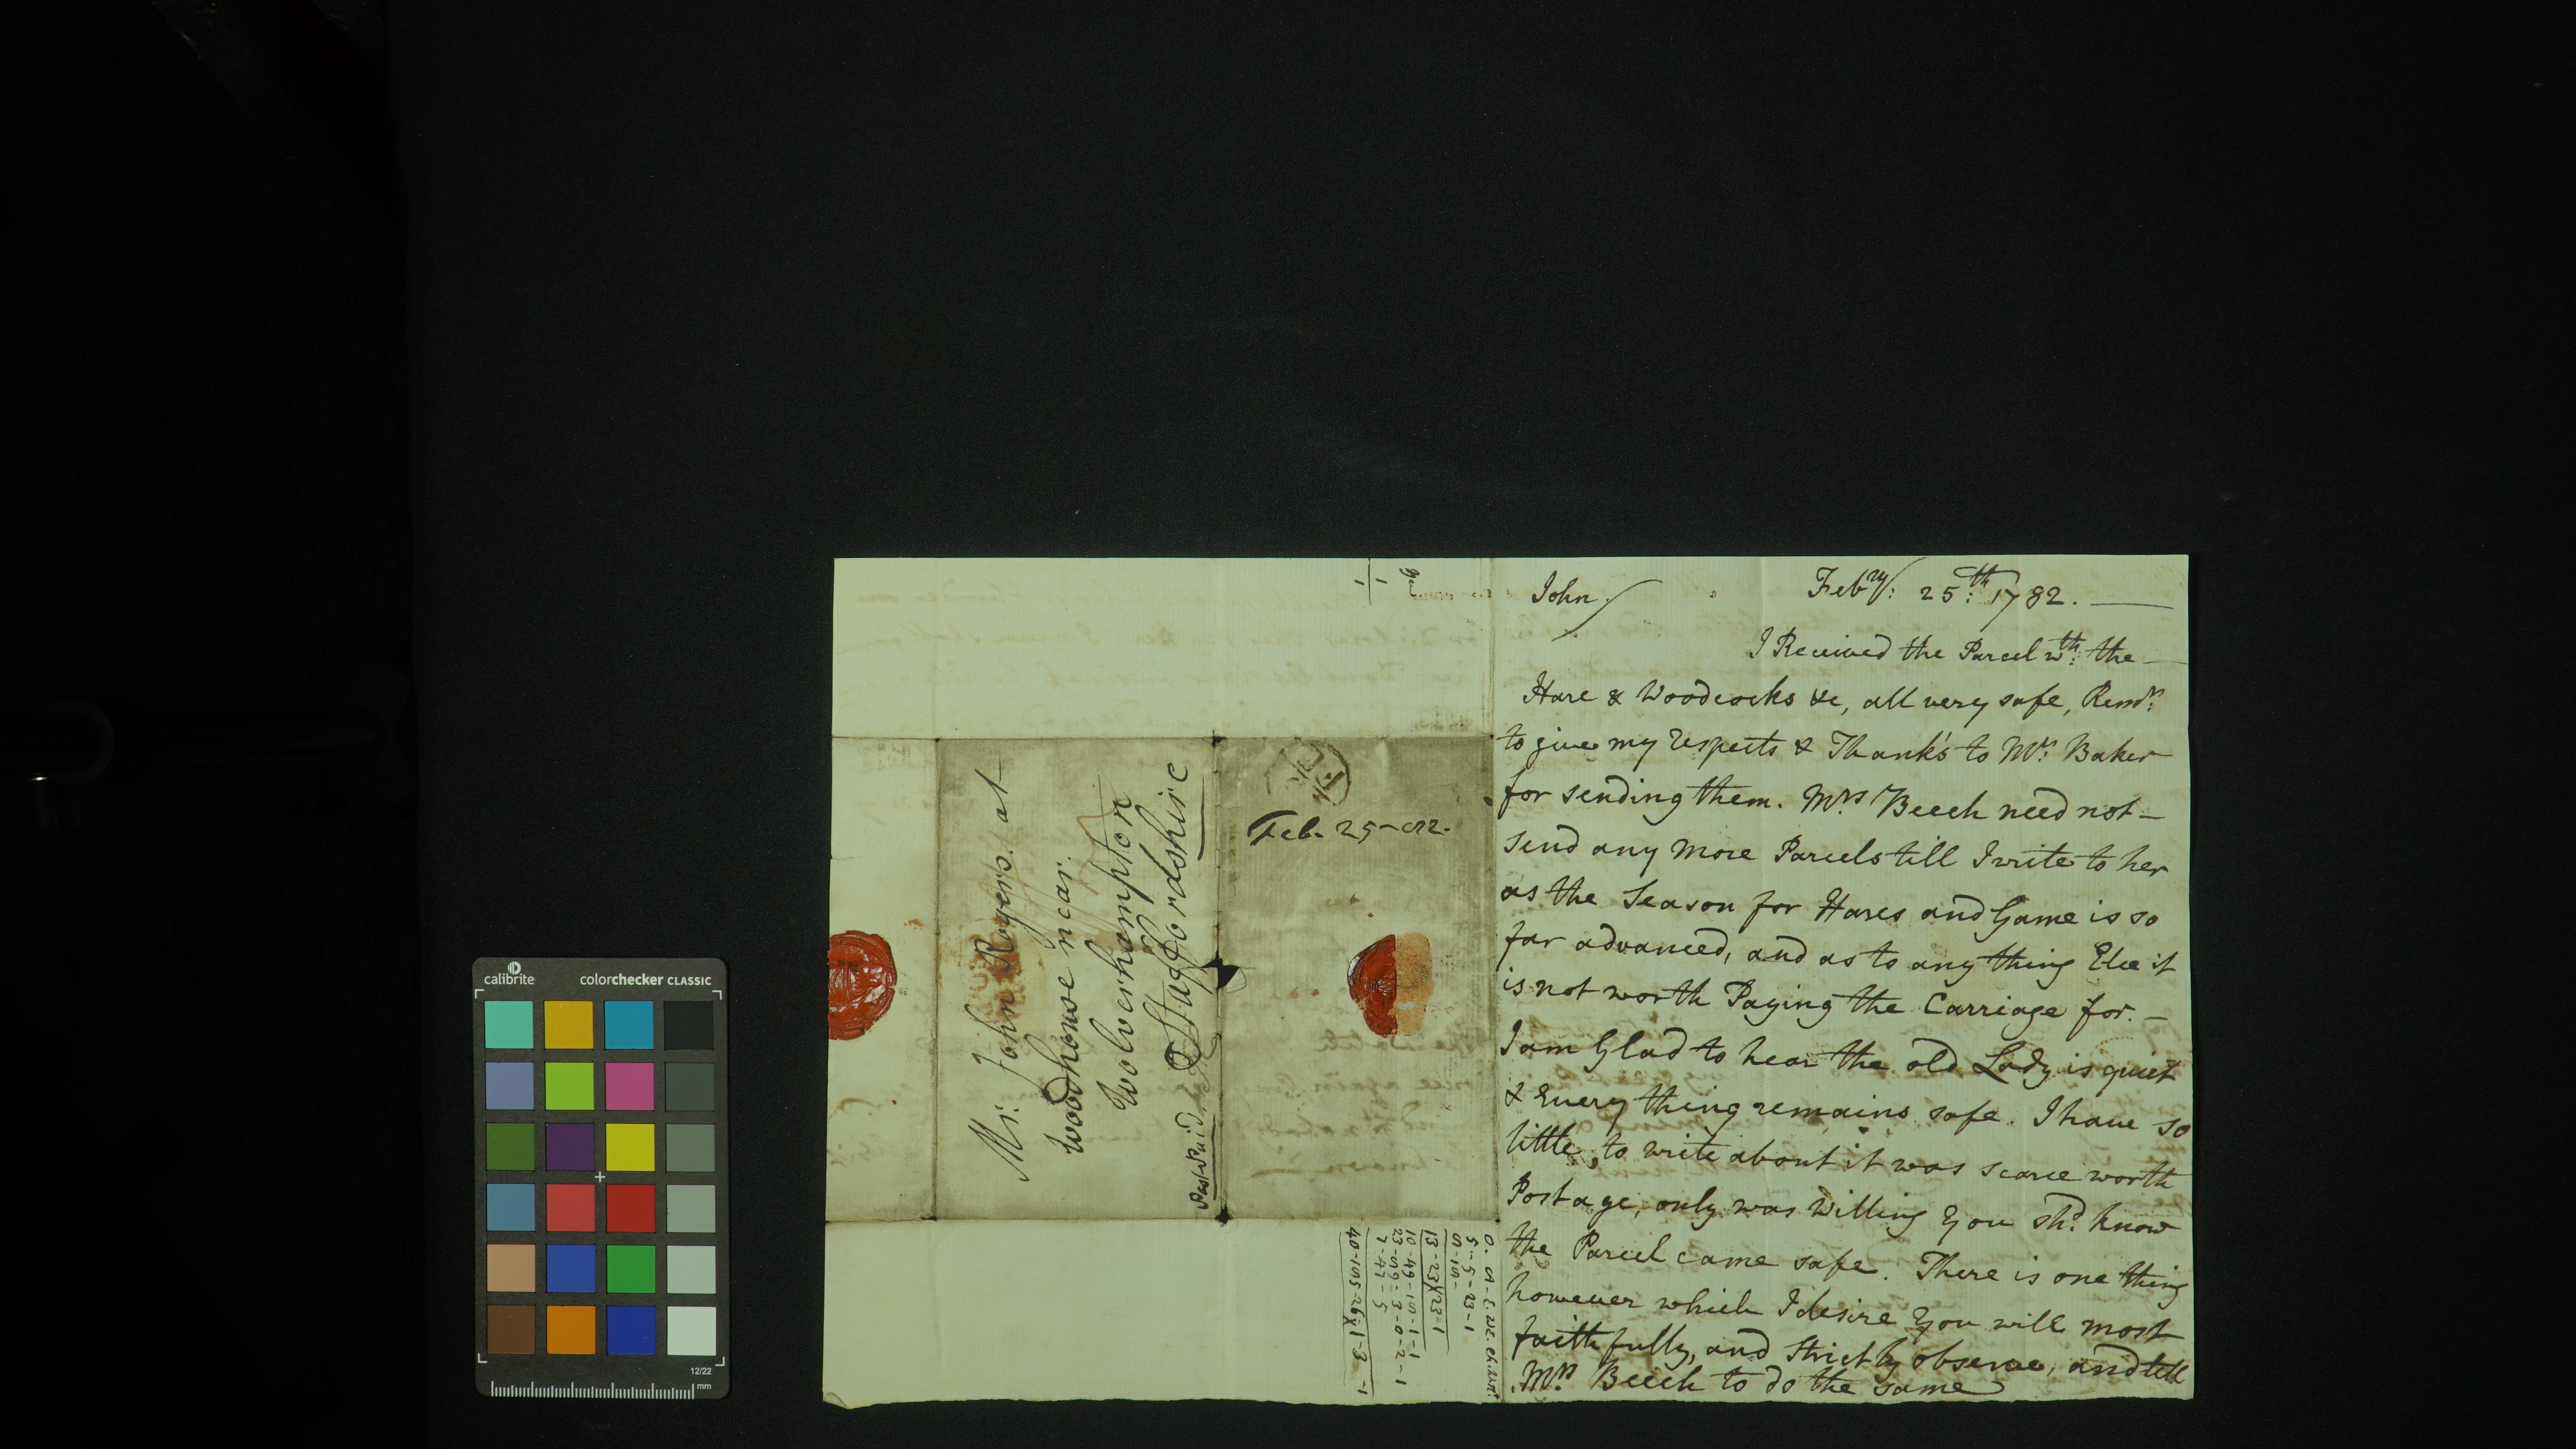 John
Feb.ry: 25:th 1782.
I Received the Parcel w:th the
Hare & Woodcocks &c, all very safe, Rem.r:
to give my respects & Thank's to Mr: Baker
for sending them. Mrs Beech need not
send any more Parcels till I write to her
as the Season for Hares and Game is so
far advanced, and as to any thing Else it
is not worth Paying the Carriage for.
I am Glad to hear the old Lady is quiet
& Every thing remains safe. I have so
little, to write about it was scarce worth
Postage, only was willing you sh.d know
the Parcel came safe. There is one thing
however which I desire You will most
faithfully, and Strictly observe, and tell
Mrs. Beech to do the same
Mr. John Rogers. at
Woodhouse near.
Wolverhampton
Staffordshire
Post Paid
Feb. 25-
5-5-23-1
13-23
23-1
7-47-5
calibrite
colorchecker CLASSIC
12/22
mm